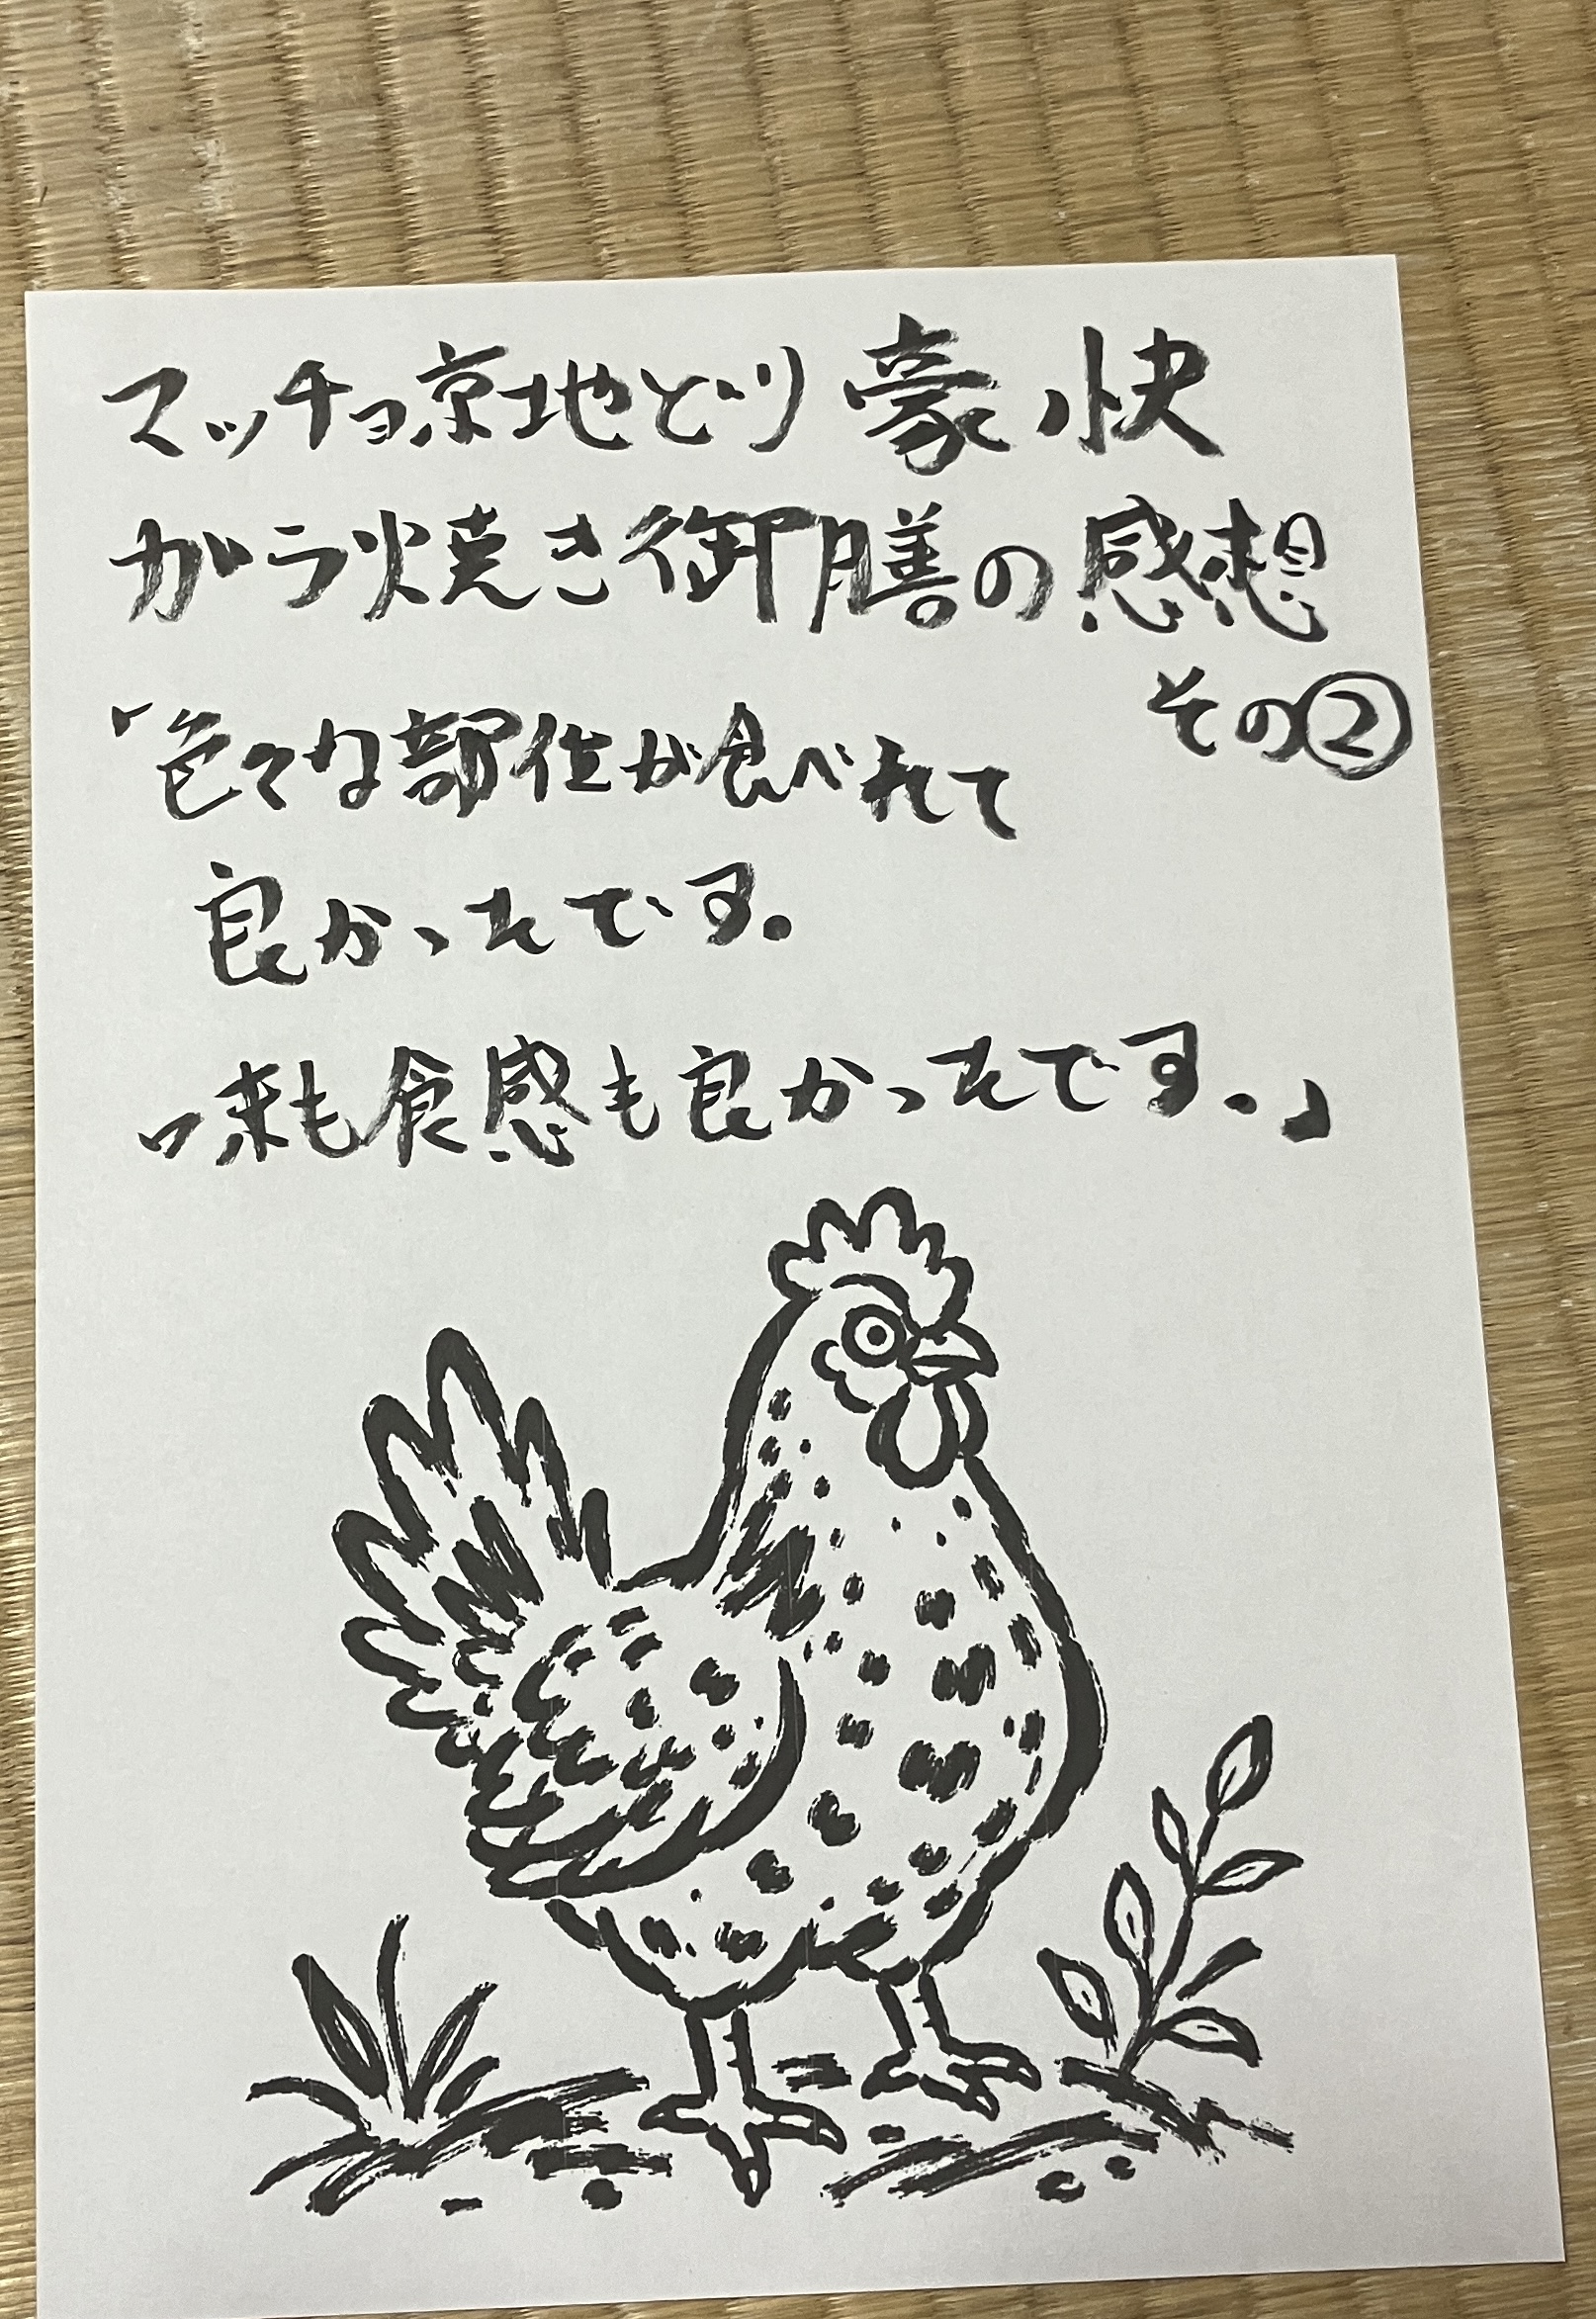 マッチョ京地どり豪快
ガラ焼き御膳の感想
その②
「色々な部位が食べれて
良かったです。
味も食感も良かったです。」